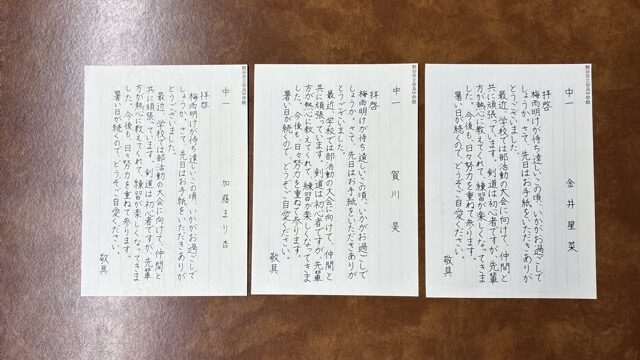 中一 金井星菜
拝啓
梅雨明けが待ち遠しいこの頃、いかがお過ごしで
しょうか。さて、先日はお手紙をいただきありが
とうございました。
最近、学校では部活動の大会に向けて、仲間と
共に頑張っています。剣道は初心者ですが、先輩
方が熱心に教えてくれて、練習が楽しくなってきま
した。今後も、日々努力を重ねて参ります。
暑い日が続くので、どうぞご自愛ください。
敬具
中一 賀川 昊
拝啓
梅雨明けが待ち遠しいこの頃、いかがお過ごしで
しょうか。さて、先日はお手紙をいただきありが
とうございました。
最近、学校では部活動の大会に向けて、仲間と
共に頑張っています。剣道は初心者ですが、先輩
方が熱心に教えてくれ、練習が楽しくなってきま
した。今後も、日々努力を重ねて参ります。
暑い日が続くので、どうぞご自愛ください。
敬具
中一 加藤まり杏
拝啓
梅雨明けが待ち遠しいこの頃、いかがお過ごしで
しょうか。さて、先日はお手紙をいただきありが
とうございました。
最近、学校では部活動の大会に向けて、仲間と
共に頑張っています。剣道は初心者ですが、先輩
方が熱心に教えてくれて、練習が楽しくなってきま
した。今後も、日々努力を重ねて参ります。
暑い日が続くので、どうぞご自愛ください。
敬具